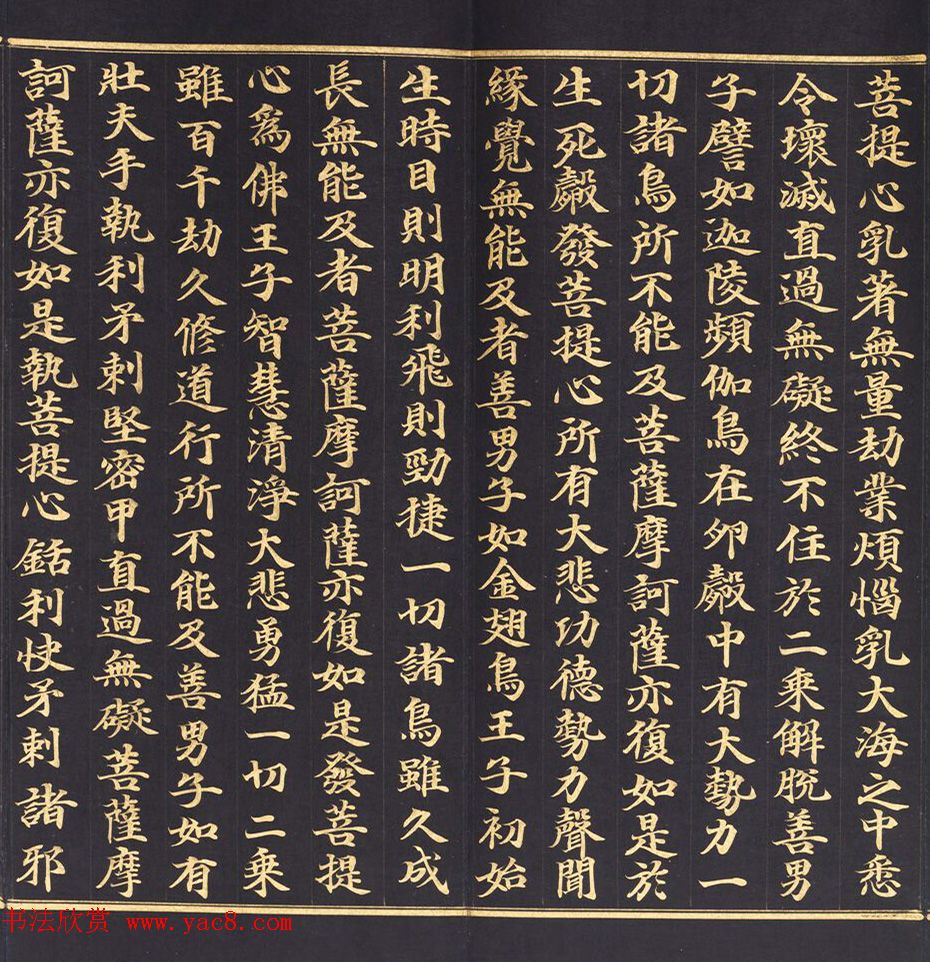 菩提心乳著無量劫業煩惱乳大海之中悉
令壞滅直過無礙終不住於二乘解脫善男
子譬如迦陵頻伽鳥在卵㲉中有大勢力一
切諸鳥所不能及菩薩摩訶薩亦復如是於
生死㲉發菩提心所有大悲功德勢力聲聞
緣覺無能及者善男子如金翅鳥王子初始
生時目則明利飛則勁捷一切諸鳥雖久成
長無能及者菩薩摩訶薩亦復如是發菩提
心為佛王子智慧清淨大悲勇猛一切二乘
雖百千劫久修道行所不能及善男子如有
壯夫手執利矛刺堅密甲直過無礙菩薩摩
訶薩亦復如是執菩提心銛利快矛刺諸邪
书法欣赏 www.yac8.com